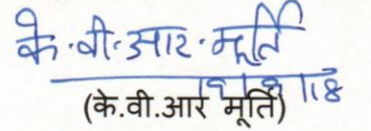 के.वी.आर.मूर्ति
(के.वी.आर मूर्ति)